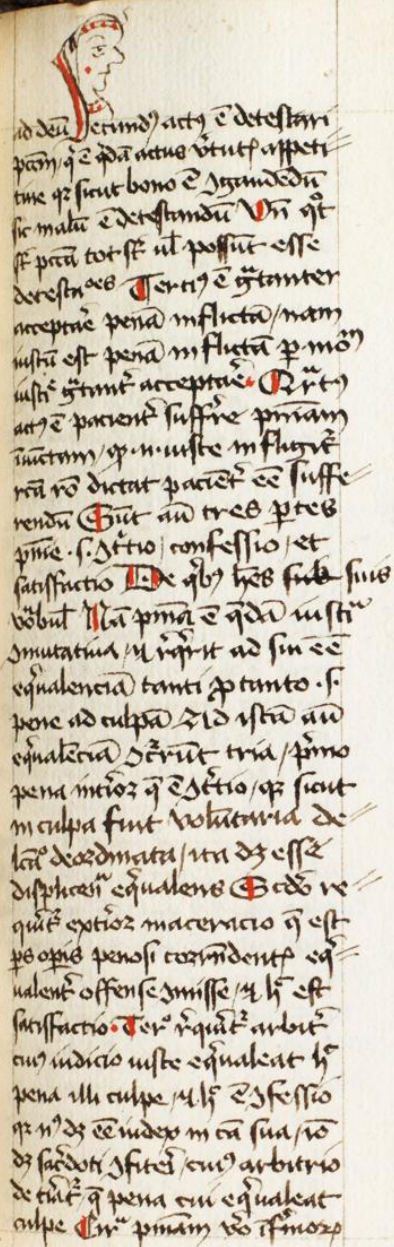 ad deū Secundꝰ actꝰ ē detestari
pctm̄, q̄ ē q̄dā actus v̓tutꝭ appeti-
tiue qꝛ sicut bono ē ꝯgaudēdū
sic malū ē detestandū Vn̄ qͦt
sūt pctā tot sūt ul̓ possūt esse
detestaͦes Terciꝰ ē gͣtanter
acceptar̄e penā inflictā / nam
iustū est penā inflictā ꝑ
iusticͥ gͣtant̓ acceptar̄e. Qͣrtꝰ
actꝰ ē pacient̓ suffr̄re pn̄iam
iniūctam / qꝛ iuste infligit̓
rcā rō dictat pacient̓ eē suffe-
rendū Sūt aū tres ꝑtes
pn̄ie .s. ꝯtͥtio / confessio / et
satisfactio De qͥbꝫ hēs sub suis
vōbul̓ Nā pn̄ia ē q̄dā iustiͣ
ꝯmutatiua / ⁊ rͥqͥrit ad sui eē
eqͥualenciā tanti ꝓ tanto .s.
pene ad culpā Ad istā aū
eqͥualēciā ꝯcͥrūt tria / pͥmo
pena intͥor q̄ ē ꝯtͥtio / qꝛ sicut
in culpa fuit volūtaria de-
lcāͦ deordinata / ita dꝫ esse
displicenͣ eqͥualens Scd̓o re-
quirit̓ extͥor maceracio q̄ est
ꝑs oꝑis penosi corrn̄dentꝭ eqͥ-
ualent̓ offense ꝯmisse / ⁊ hͨ est
satisfactio. Terͦ rͥquirit̓ arbit̓
cuiꝰ iudicio iuste eqͥualeat hͨ
pena illi culpe / ⁊ hͨ ē ꝯfessio
qꝛ nꝰ dꝫ eē iudex in cā sua / iō
dꝫ sac̓doti ꝯfiteri / cuiꝰ arbitrio
de t̓iat̓ q̄ pena cui eqͥualeat
culpe Cirͣ pn̄iam vo īfͥmoꝝ